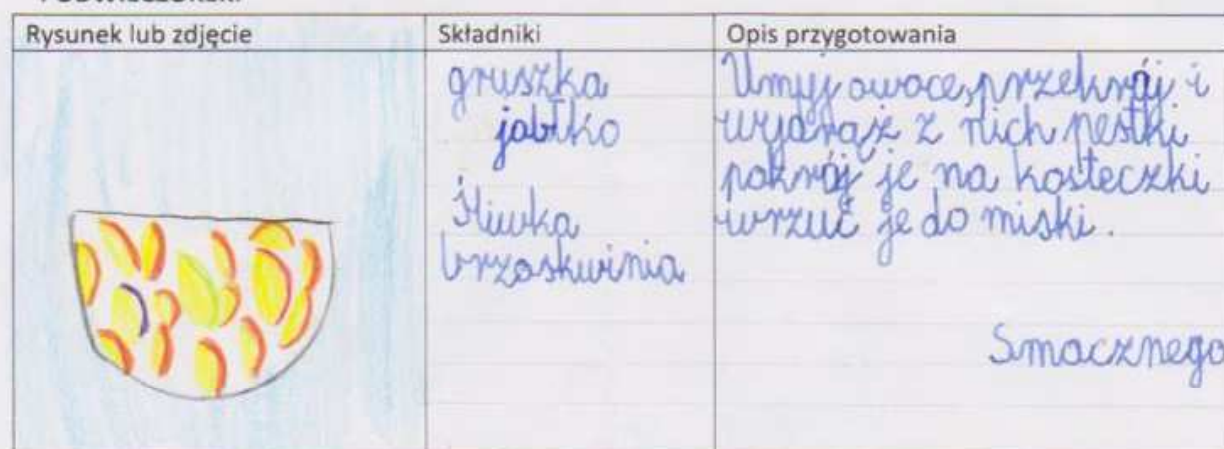 Rysunek lub zdjęcie
Składniki
Opis przygotowania
gruszka
jabłko
śliwka
brzoskwinia
Umyj owoce, przekrój i
z nich pestki
pokrój je na kosteczki
wrzuć je do miski.
Smacznego